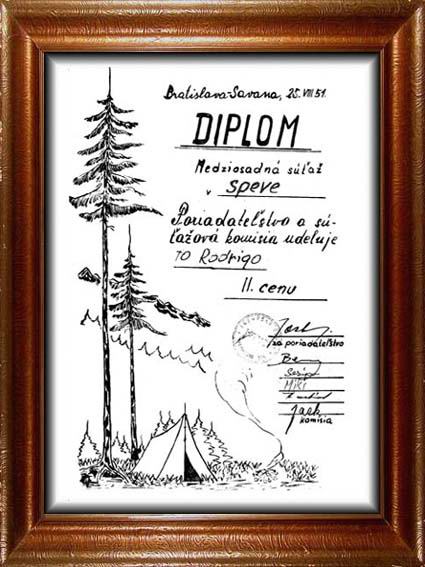 Bratislava-Savana, 25. VIII 51.
DIPLOM
Medziosadná súťaž
v speve
Poriadateľstvo a sú-
ťažová komisia udeľuje
TO Rodrigo
II. cenu
za poriadateľstvo
MIKI
Jack
komisia